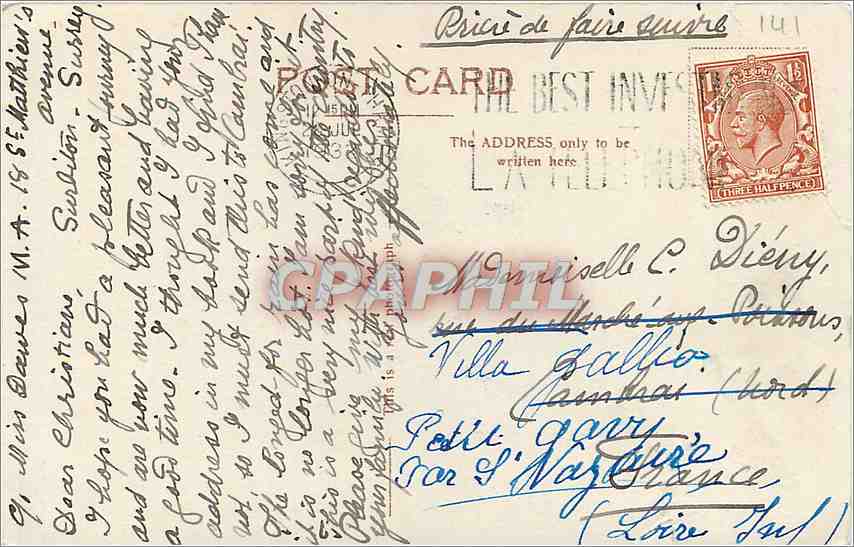 Prière de faire suivre
141
POST CARD
THE BEST INVES
A TELEPHONE
The ADDRESS only to be
written here
THREE HALFPENCE
CPAPHIL
This is a real photograph
Mademoiselle C. Diény,
rue du Marché aux Poissons,
Villa Gallia
Cambrai (Nord)
Petit Gavy
Par St Nazaire
France
(Loire Inf)
c/o Miss Dawes M.A. 18 St Matthieu's
avenue
Surbiton - Surrey
Dear Christiane,
I hope you had a pleasant journey
and are now much better and having
a good time. I thought I had your
address in my book and I find I have
not so I must send this to Cambrai.
The longed-for rain has come and
it is no longer hot. I am sorry for it
this is a very
Please give my kind regards to
your family with best